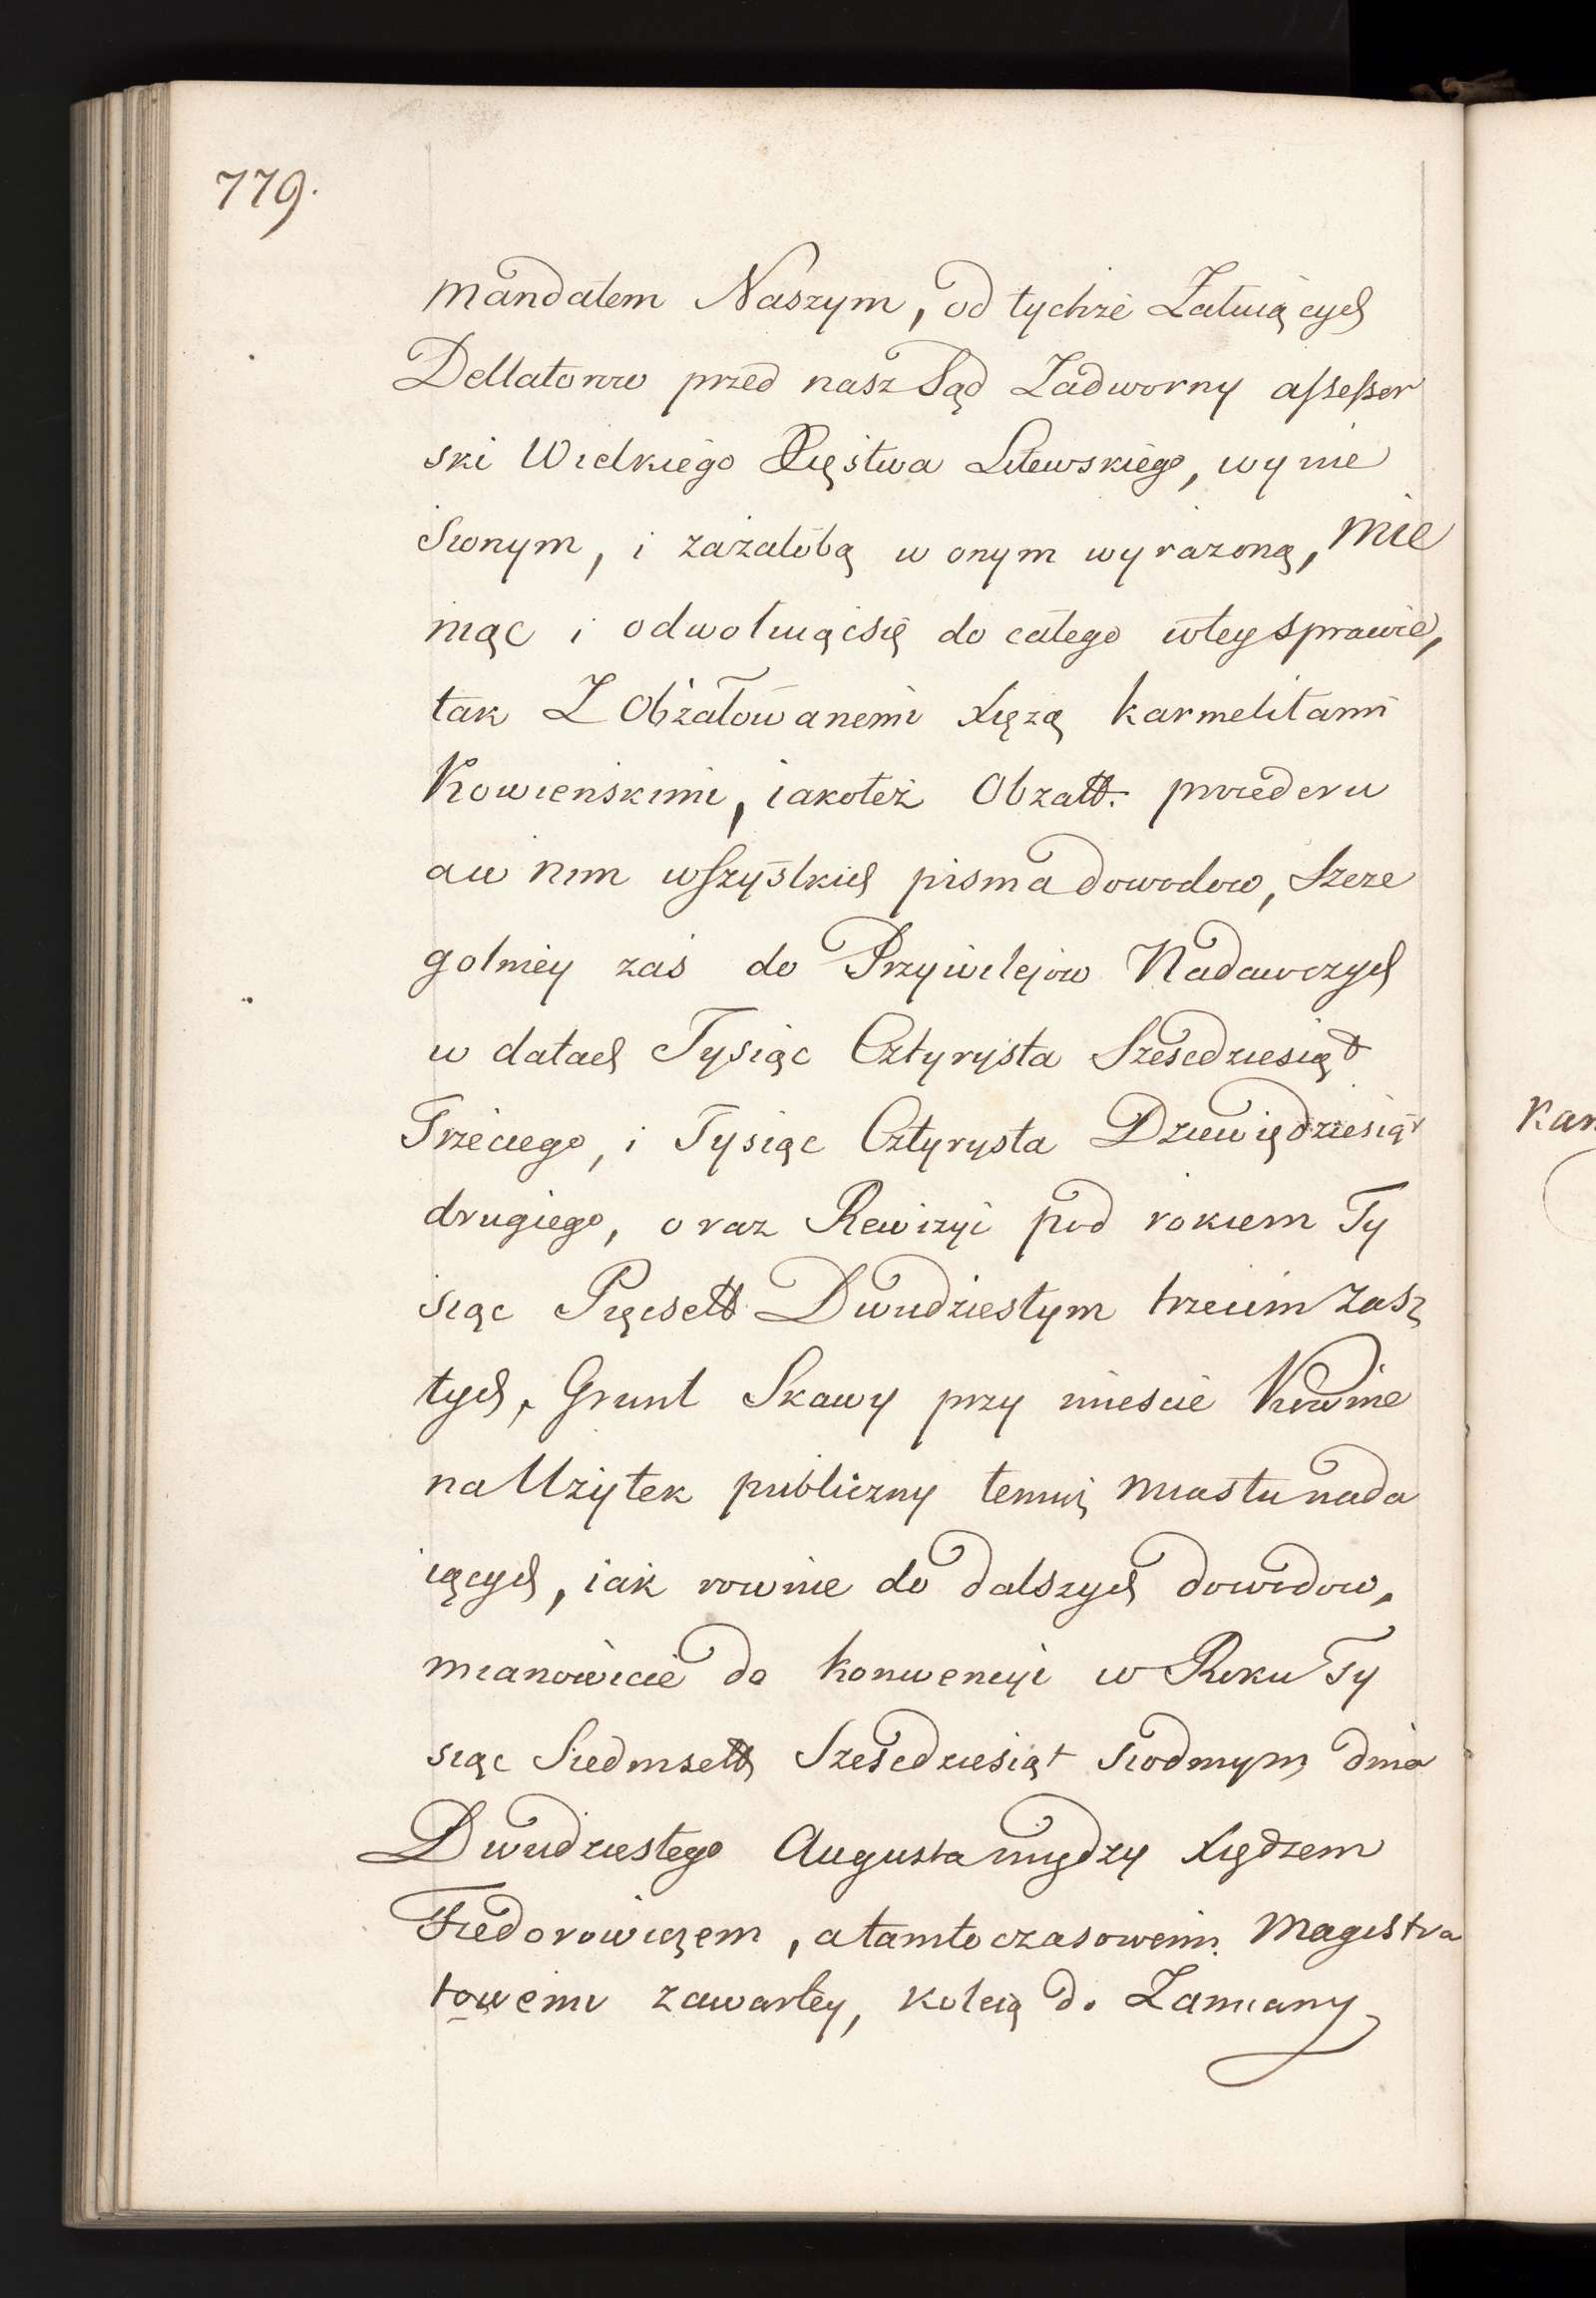 779.
mandatem Naszym, od tychże Załuiących
Dellatorow przed nasz Sąd Zadworny assessor
ski Wielkiego Xięstwa Litewskiego, wynie
sionym, i zażałobą w onym wyrażoną, mie
niąc i odwołuiącsię do całego wtey sprawie,
tak Z Obżałowanemi Xiężą karmelitami
Kowienskimi, iakoteż Obzałł. procederu
a w nim wszystkich pisma dowodow, Szcze
golniey zaś do Przywilejow Nadawczych
w datach Tysiąc Cztyrysta Sześcdziesiąt
Trzeciego, i Tysiąc Cztyrysta Dziewiędziesiąt
drugiego, oraz Rewizyi pod rokiem Ty
siąc Pięcsett Dwudziestym trzecim zasz
łych, Grunt Skawy przy mieście Kownie
na Użytek publiczny temuż miastu nada
iących, iak rownie do dalszych dowodow,
mianowicie do konwencyi w Roku Ty
siąc Siedmsett Sześcdziesiąt siodmym dnia
Dwudziestego Augusta między Xiędzem
Fiedorowiczem, a tamtoczasowemi Magistra
towemi zawartey, kolcią do Zamiany
Kar